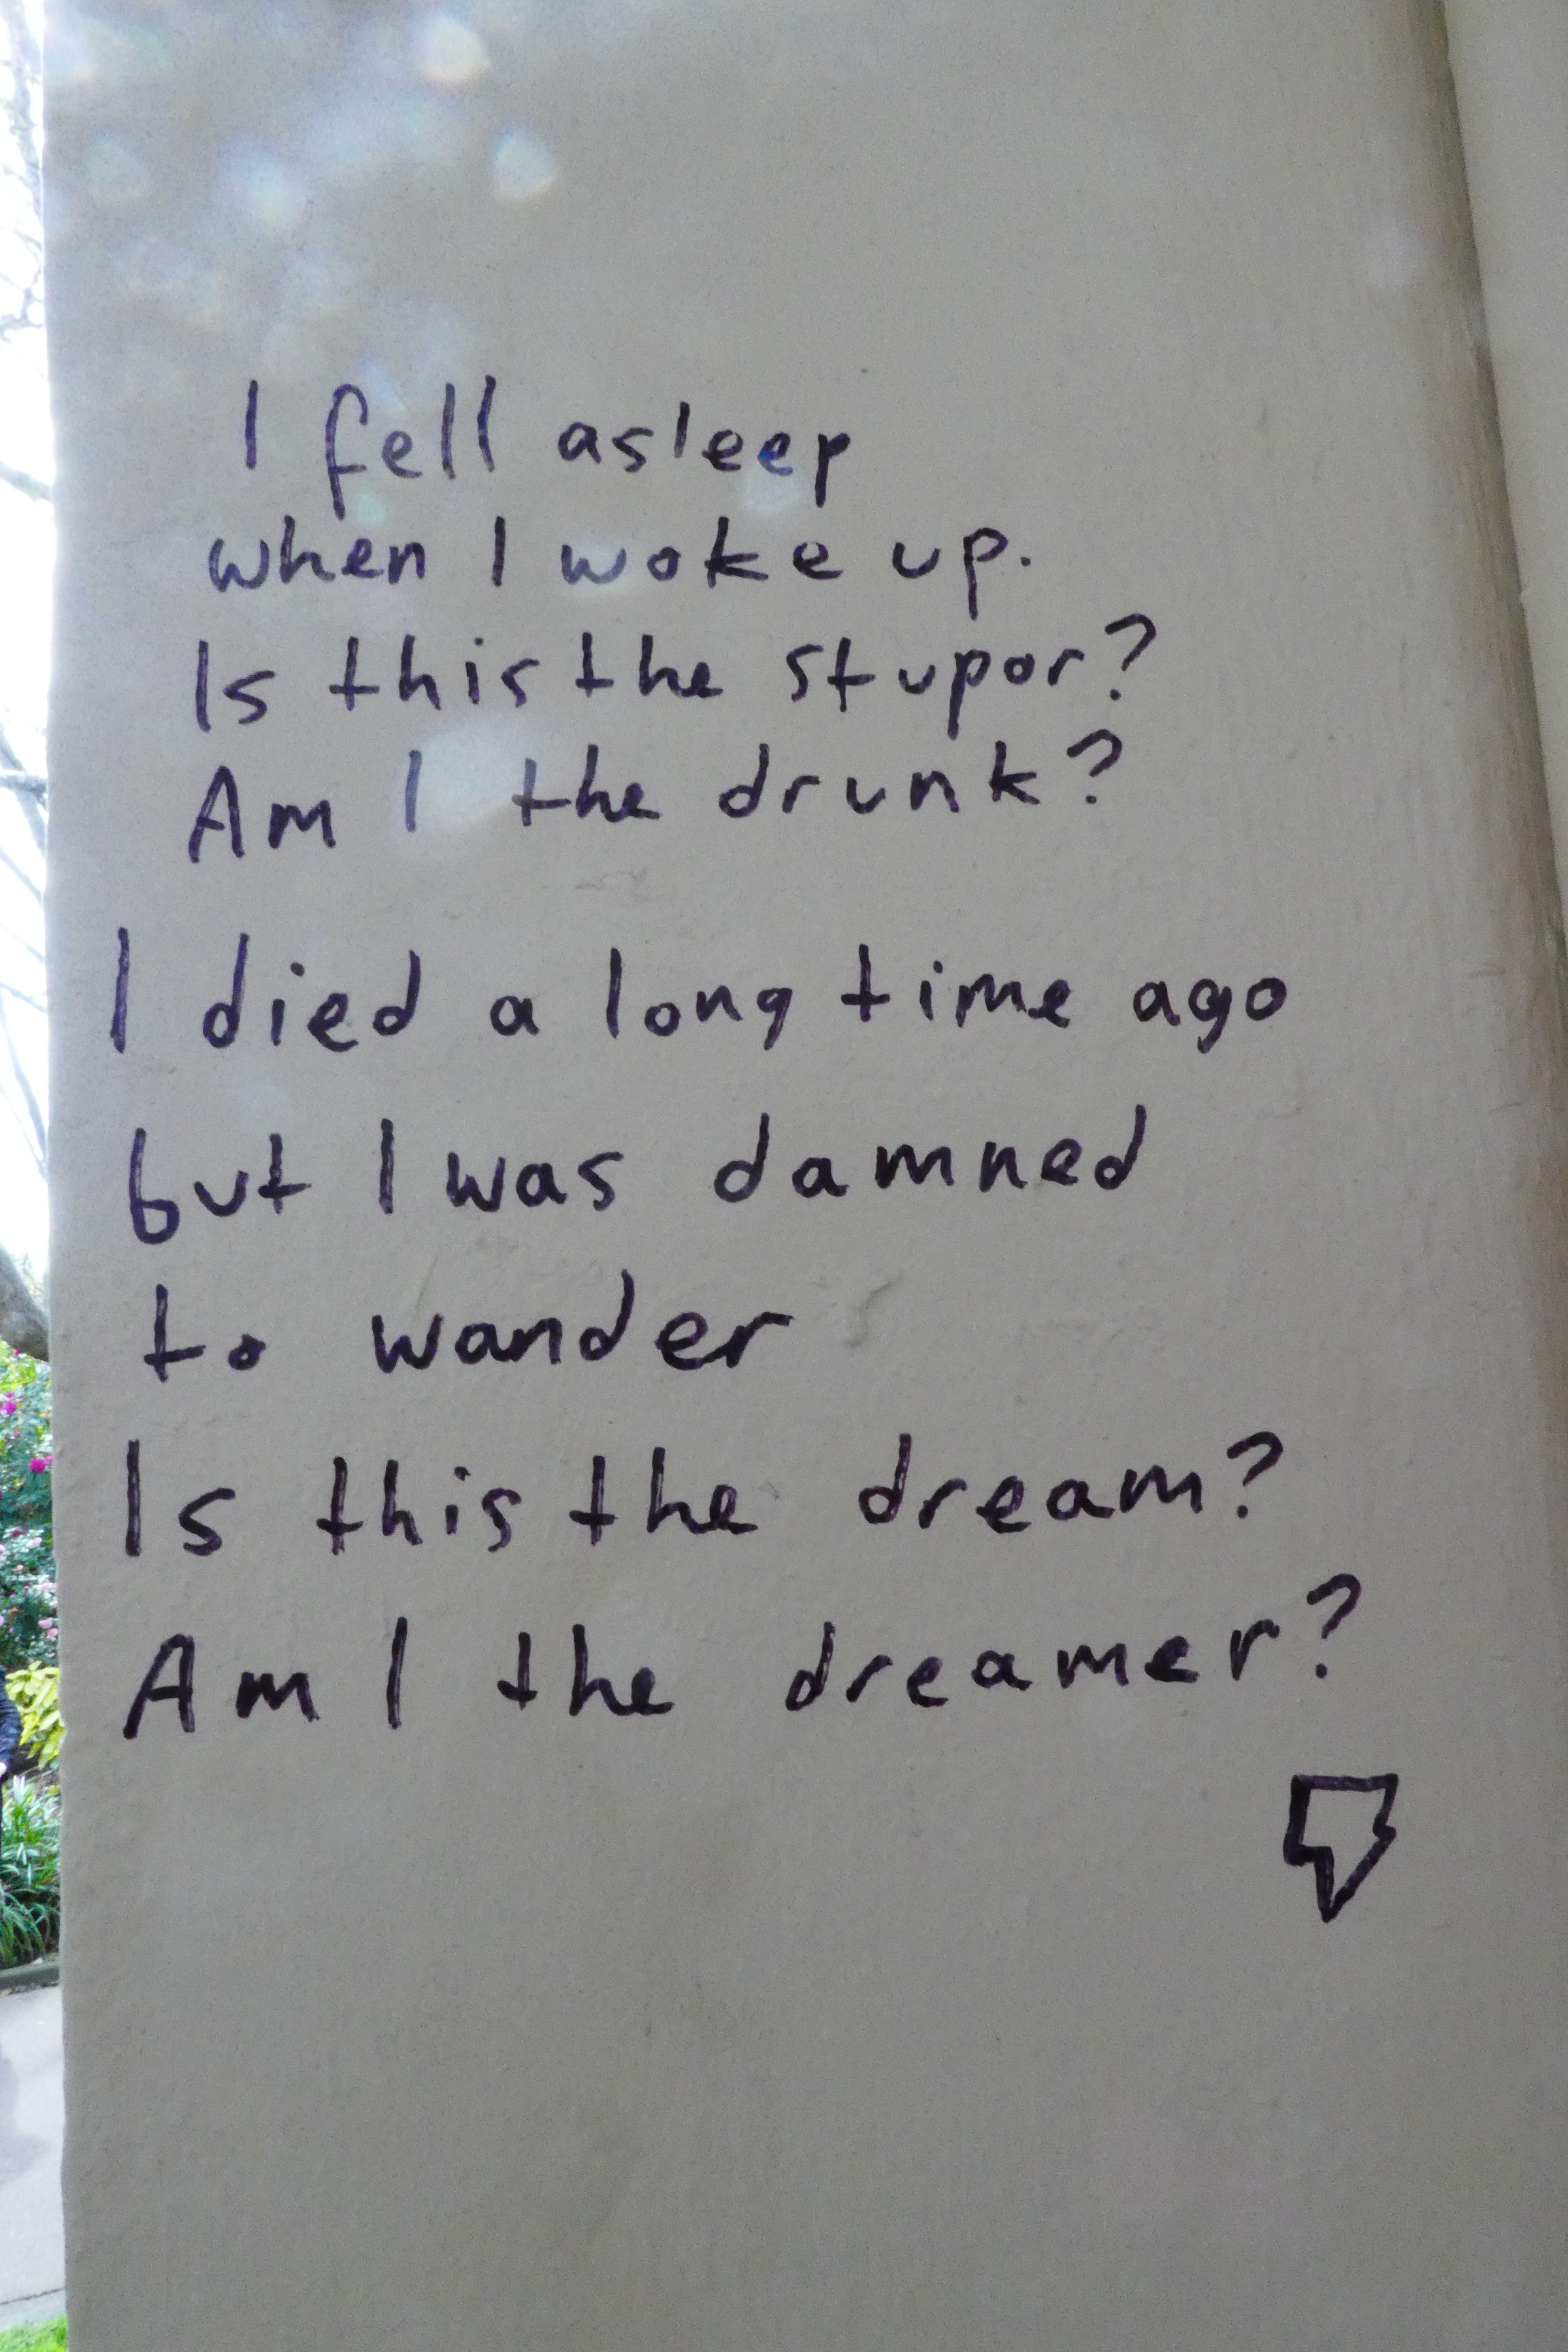 I fell asleep
when I woke up.
Is this the stupor?
Am I the drunk?
I died a long time ago
but I was damned
to wander
Is this the dream?
Am I the dreamer?